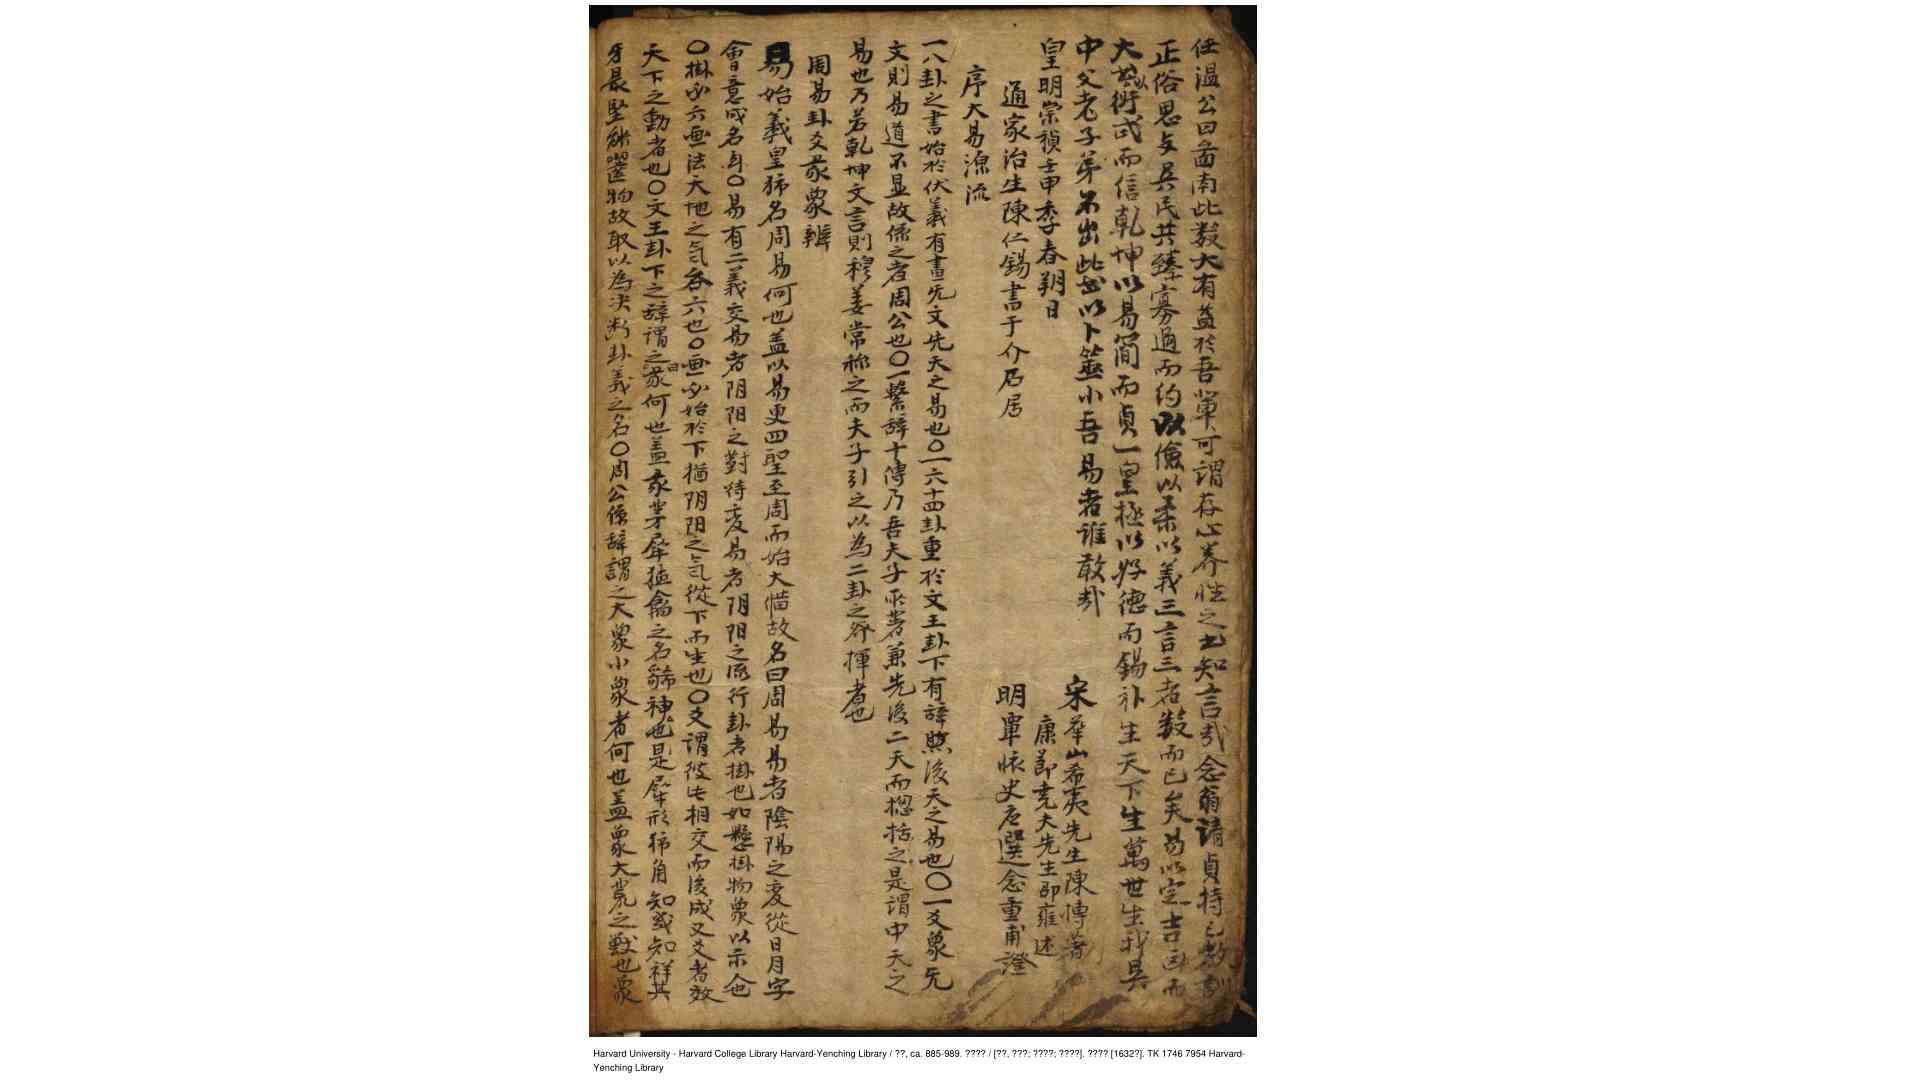 任溫公曰啚南此数大有益於吾軰可謂存心养性之 知言哉念翁請貞持己教
正俗思与吳民共臻寡過而約以儉以柔以義三言三者数而已矣易以定吉凶而
大 衍或而信乾坤以易簡而貞一皇極以好德而錫礼生天下生萬世生我吳
中父老子弟不出此 以卜筮小吾易者誰敢哉
皇明崇禎壬申季春朔日
通家治生陳仁錫書于介石居
宋華山希夷先生陳摶著
康節堯夫先生邵雍述
明軍 史 選念重甫證
序大易源流
一八卦之書始於伏義有畫旡文先天之易也〇一六十四卦重於文王卦下有辞 後天之易也〇一爻象旡
文則易道不显故係之者周公也〇一繫辞十傳乃吾夫子 著兼先後二天而摠括之是謂中天之
易也乃若乾坤文言則穆姜常称之而夫子引之以為二卦之 揮者也
周易卦爻彖象辨
易始義皇 名周易何也盖以易更四聖至周而始大俻故名曰周易易者陰陽之变從日月字
會意成名 〇易有二義交易者阴阳之對待变易者阴阳之流行卦者掛也如懸掛物象以示
〇掛必六画法天地之气各六也〇画必始於下猶阴阳之气從下而生也〇爻謂彼此相交而後成又爻者效
天下之動者也〇文王卦下之辞謂之彖何也盖彖 犀 之名 神也是犀形 角知 知祥其
牙最堅能 物故取以為决断卦義之名〇周公係辞謂之大象小象者何也盖象大荒之獸也象
Harvard University - Harvard College Library Harvard-Yenching Library / ??, ca. 885-989. ???? / [??, ???; ????; ????]. ???? [1632?]. TK 1746 7954 Harvard-
Yenching Library